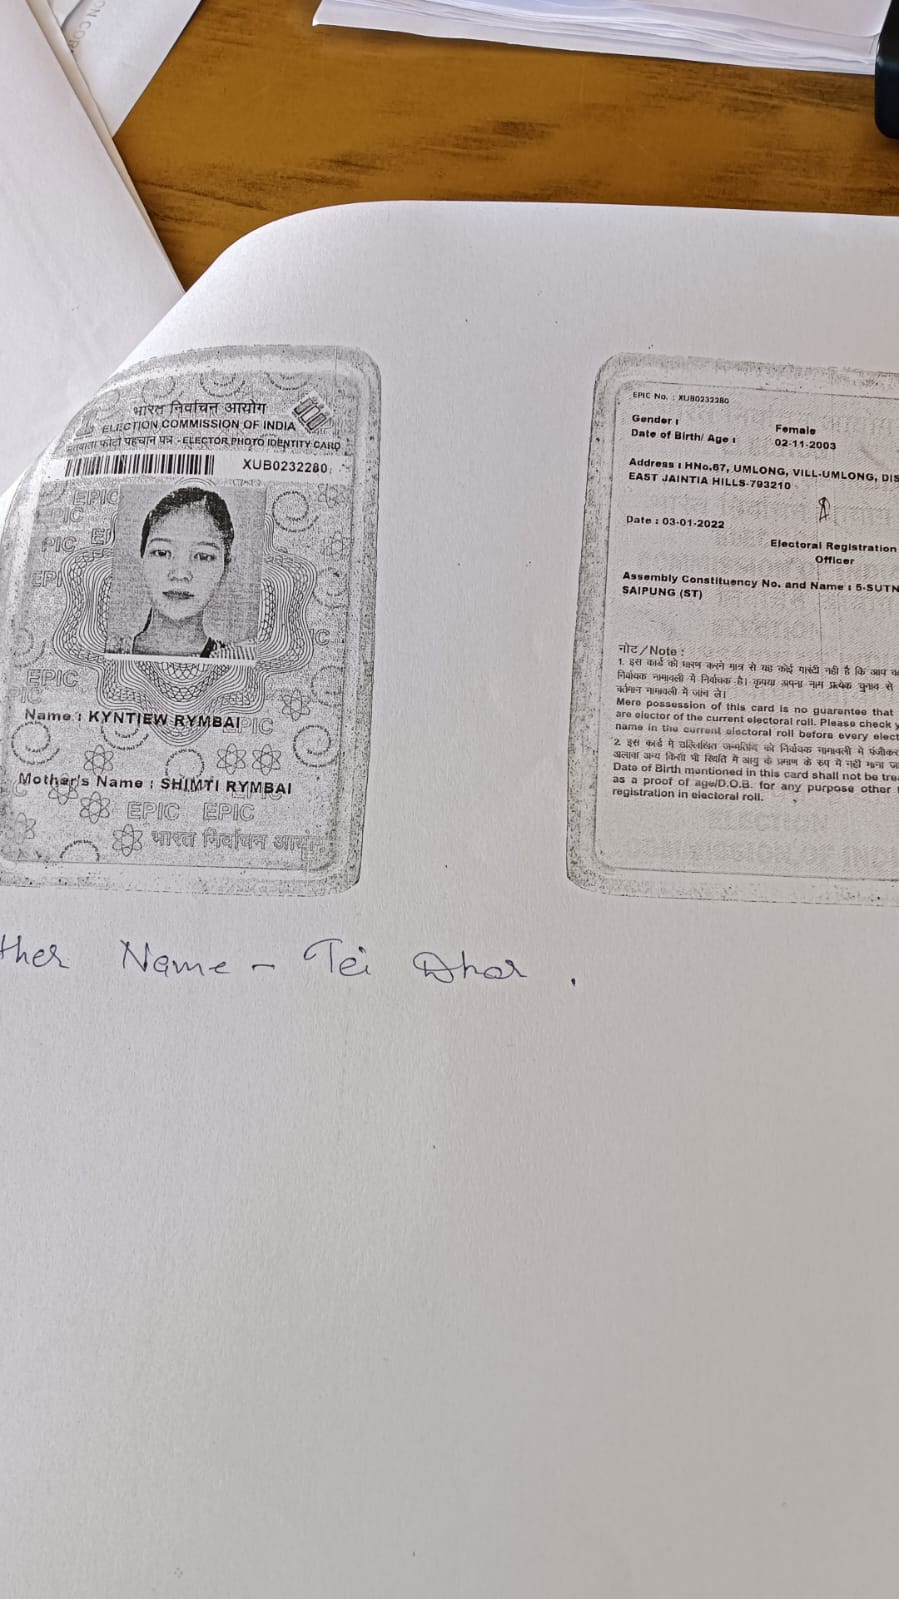 भारत निर्वाचन आयोग
ELECTION COMMISSION OF INDIA
पहचान पत्र - ELECTOR PHOTO IDENTITY CARD
XUB0232280
Name : KYNTIEW RYMBAI
Mother's Name : SHIMTI RYMBAI
EPIC EPIC
भारत निर्वाचन
EPIC No. : XUB0232280
Gender : Female
Date of Birth/ Age : 02-11-2003
Address : HNo.67, UMLONG, VILL-UMLONG, DIS
EAST JAINTIA HILLS-793210
Date : 03-01-2022
Electoral Registration
Officer
Assembly Constituency No. and Name : 5-SUTN
SAIPUNG (ST)
नोट/Note :
1. इस कार्ड को धारण करने मात्र से यह कोई गारंटी नही है कि आप
निर्वाचक नामावली में निर्वाचक है। कृपया अपना नाम प्रत्येक चुनाव से
वर्तमान नामावली में जांच ले।
Mere possession of this card is no guarantee that
are elector of the current electoral roll. Please check
name in the current electoral roll before every elect
2. इस कार्ड में उल्लिखित जन्मतिथि को निर्वाचक नामावली में पंजीकर
अलावा अन्य किसी भी स्थिति में आयु के प्रमाण के रुप में नही माना
Date of Birth mentioned in this card shall not be trea
as a proof of age/D.O.B. for any purpose other
registration in electoral roll.
ther Name - Tei Dhar .